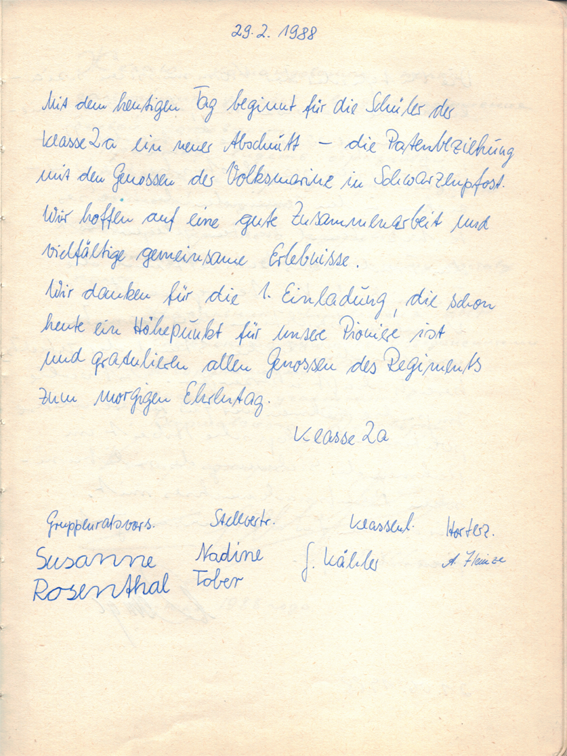 29.2.1988
Mit dem heutigen Tag beginnt für die Schüler der
Klasse 2a ein neuer Abschnitt – die Patenbeziehung
mit den Genossen der Volksmarine in Schwarzenpfost.
Wir hoffen auf eine gute Zusammenarbeit und
vielfältige gemeinsame Erlebnisse.
Wir danken für die 1. Einladung, die schon
heute ein Höhepunkt für unsere Pioniere ist
und gratulieren allen Genossen des Regiments
zum morgigen Ehrentag.
Klasse 2a
Gruppenratsvors. Stellvertr. Klassenl. Horterz.
Susanne Nadine J. Kähler A.
Rosenthal Tober